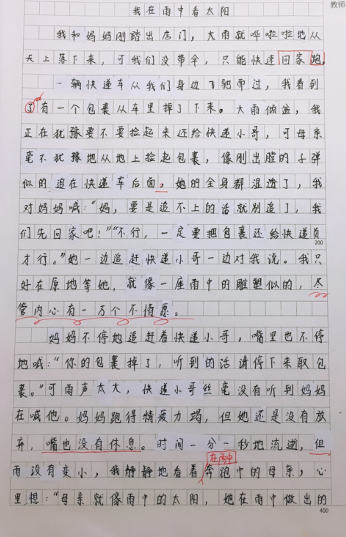 教师
我在雨中看太阳
我和妈妈刚踏出店门，大雨就哗啦啦地从
天上落下来，可我们没带伞，只能快速回家跑。
一辆快递车从我们身边飞驰而过，我看到
了有一个包裹从车里掉了下来。大雨倾盆，我
正在犹豫要不要捡起来还给快递小哥，可母亲
毫不犹豫地从地上捡起包裹，像刚出膛的子弹
似的追在快递车后面，她的全身都湿透了，我
对妈妈喊：“妈，要是追不上的话就别追了，我
们先回家吧！”“不行，一定要把包裹还给快递员
200
才行。”她一边追赶快递小哥一边对我说。我只
好在原地等她，就像一座雨中的雕塑似的，尽
管内心有一万个不情愿。
妈妈不停地追赶着快递小哥，嘴里也不停
地喊：“你的包裹掉了，听到的话请停下来取包
裹。”可雨声太大，快递小哥丝毫没有听到妈妈
在喊他。妈妈跑得精疲力竭，但她还是没有放
弃，嘴也没有休息。时间一分一秒地流逝，但
雨没有变小，我静静地看着奔跑中的母亲，心
在雨中
里想：“母亲就像雨中的太阳，她在雨中做出的
400